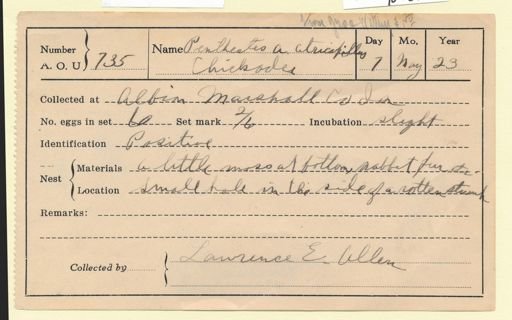 Number
A. O. U. 735
Name Penthestes a. atricapillus
Chickadee
Day Mo. Year
7 May 23
Collected at Albion Marshall Co Ia
No. eggs in set 6 Set mark 2/6 Incubation slight
Identification Positive
Nest
Materials a little moss at bottom, rabbit fur
Location small hole in the side of a rotten stump
Remarks:
Collected by Lawrence E. Allen